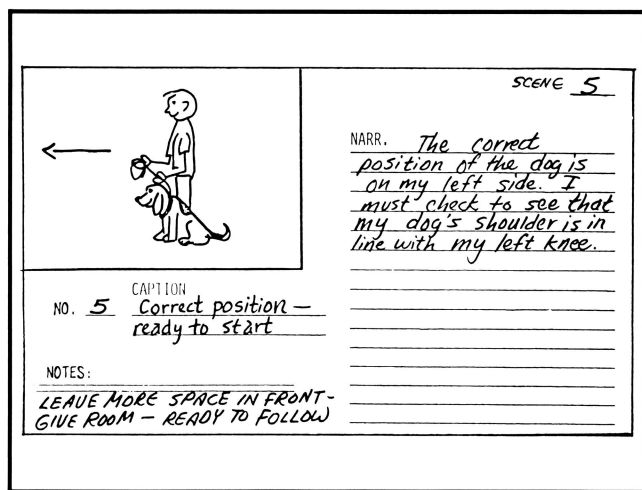 SCENE 5
NARR. The correct
position of the dog is
on my left side. I
must check to see that
my dog's shoulder is in
line with my left knee.
CAPTION
NO. 5 Correct position —
ready to start
NOTES:
LEAVE MORE SPACE IN FRONT-
GIVE ROOM — READY TO FOLLOW